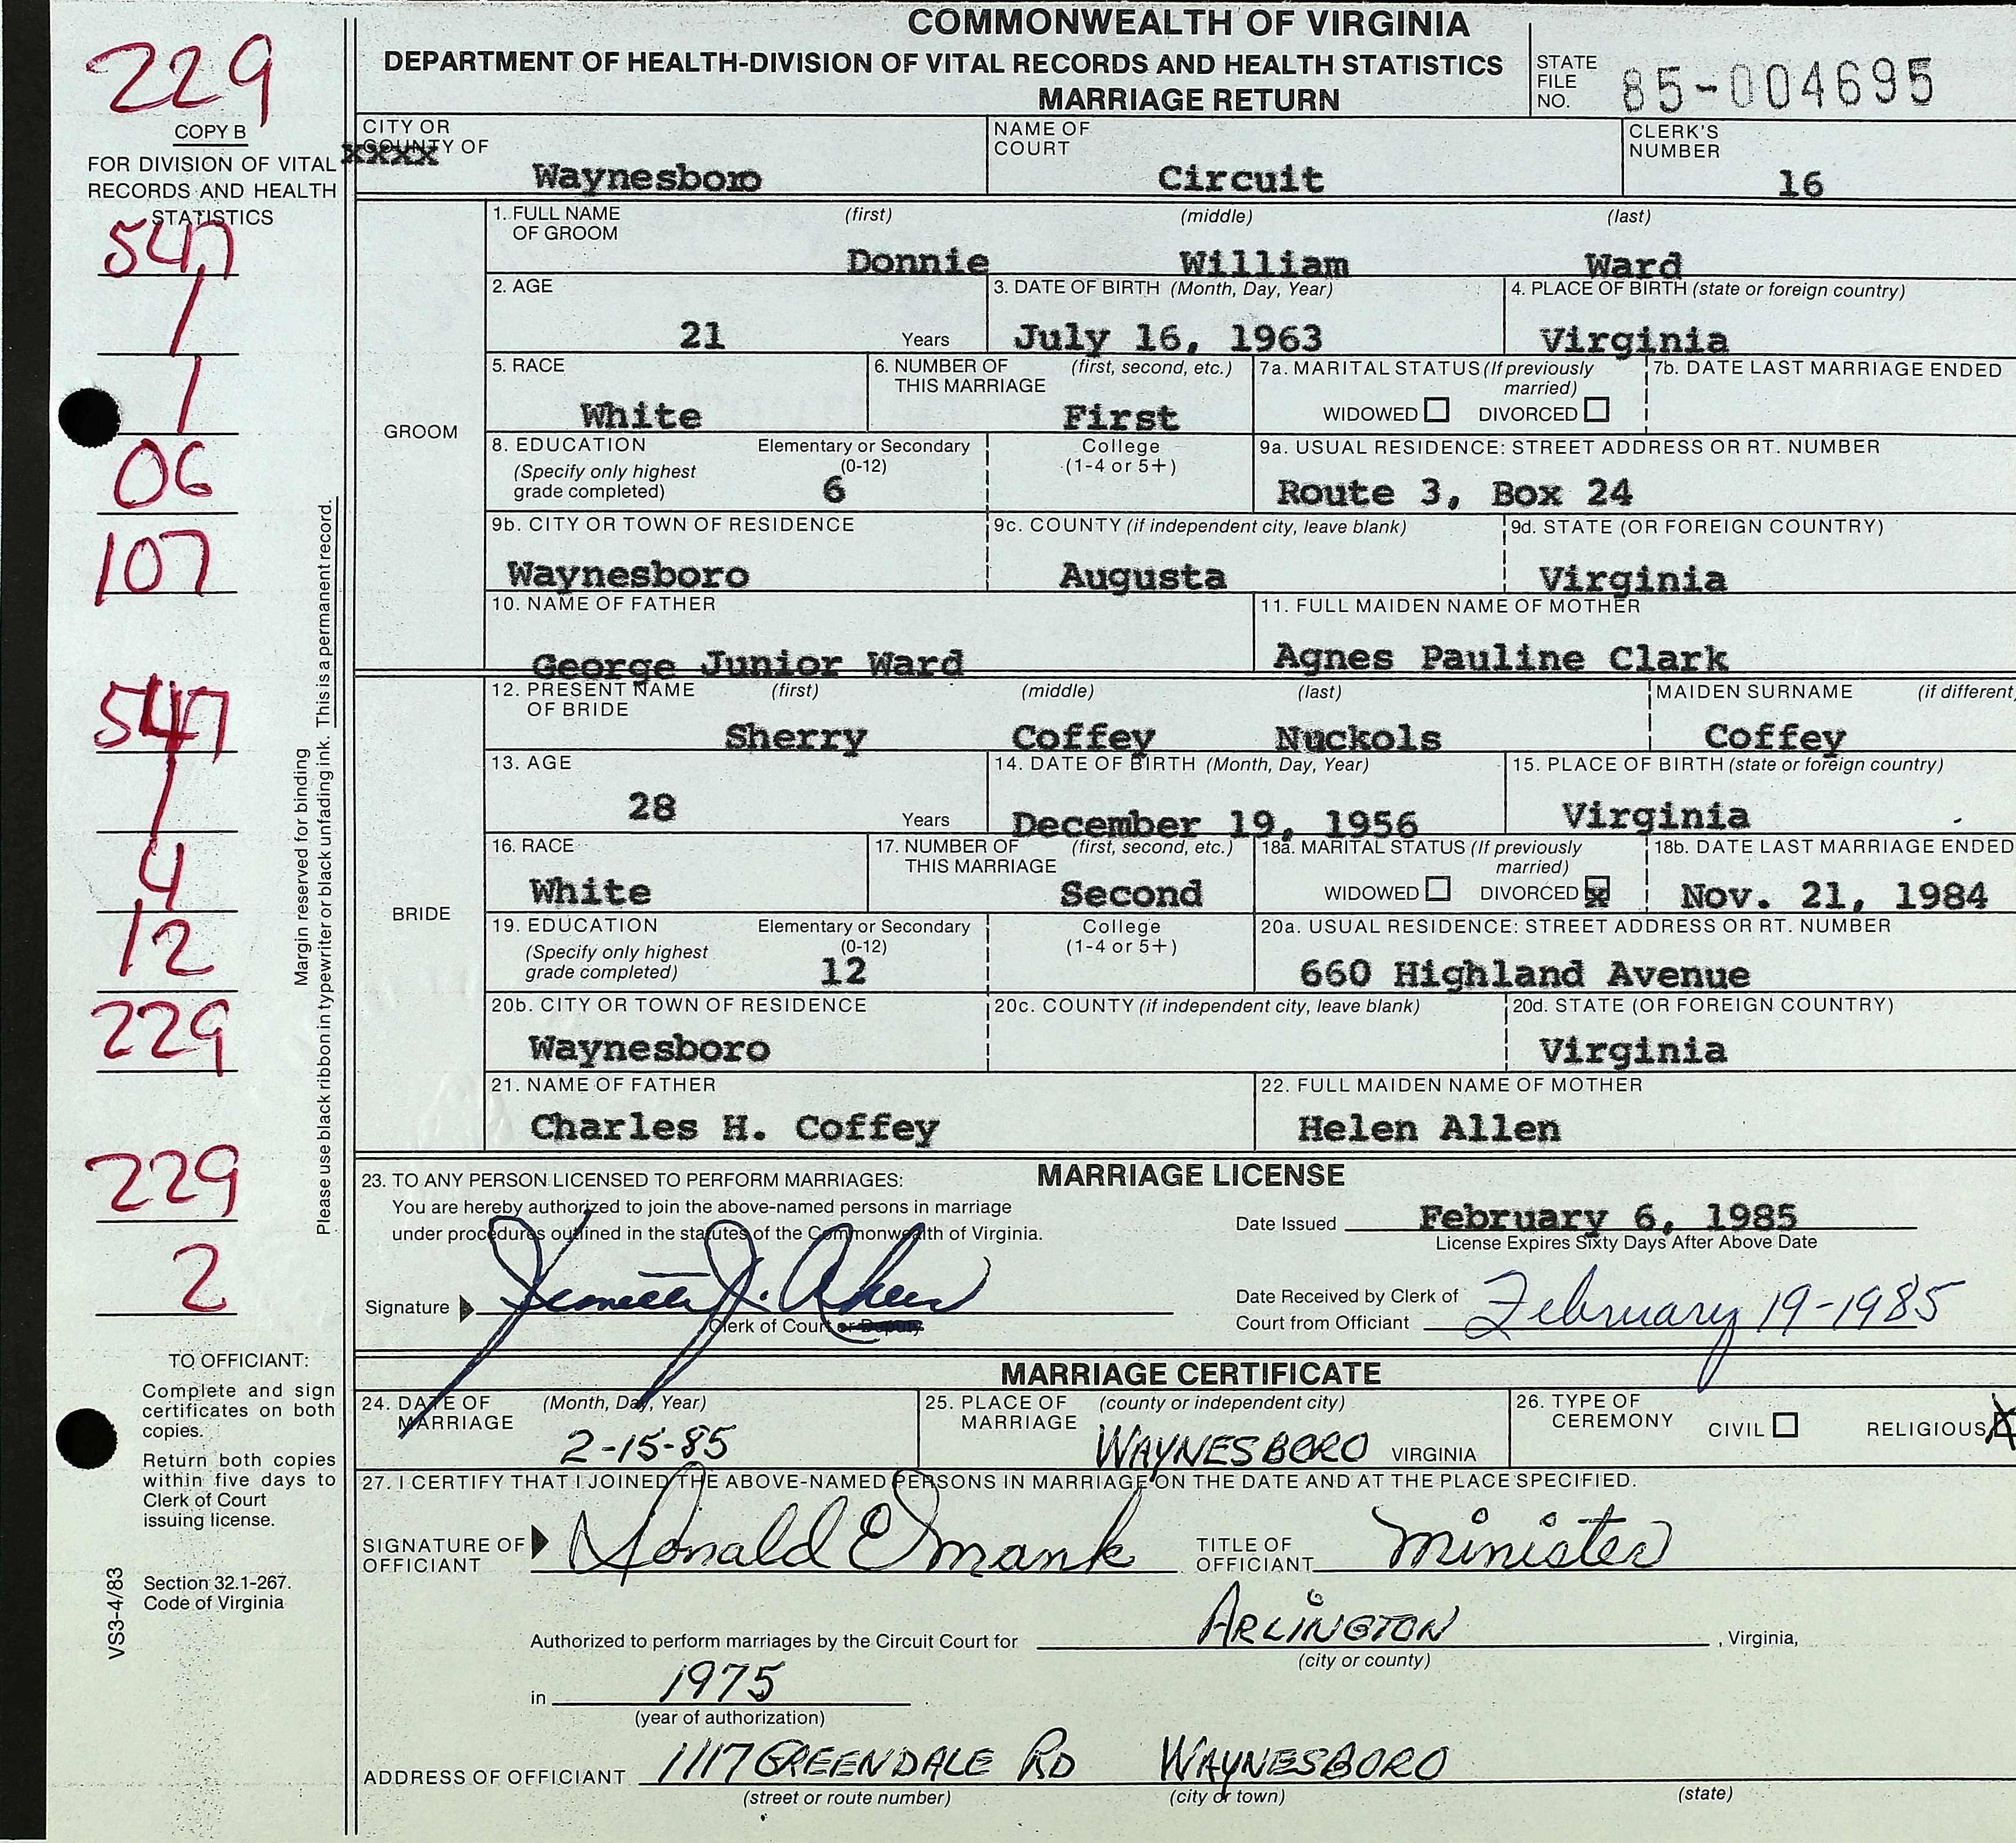 COMMONWEALTH OF VIRGINIA
DEPARTMENT OF HEALTH-DIVISION OF VITAL RECORDS AND HEALTH STATISTICS
MARRIAGE RETURN
STATE FILE NO. 85-004695
229
COPY B
FOR DIVISION OF VITAL
RECORDS AND HEALTH
STATISTICS
547
1
1
06
107
547
1
4
12
229
229
2
Margin reserved for binding
Please use black ribbon in typewriter or black unfading ink. This is a permanent record.
TO OFFICIANT:
Complete and sign
certificates on both
copies.
Return both copies
within five days to
Clerk of Court
issuing license.
Section 32.1-267.
Code of Virginia
VS3-4/83
CITY OR COUNTY OF xxxx Waynesboro
NAME OF COURT Circuit
CLERK'S NUMBER 16
GROOM
1. FULL NAME OF GROOM (first) (middle) (last)
Donnie William Ward
2. AGE 21 Years
3. DATE OF BIRTH (Month, Day, Year) July 16, 1963
4. PLACE OF BIRTH (state or foreign country) Virginia
5. RACE White
6. NUMBER OF THIS MARRIAGE (first, second, etc.) First
7a. MARITAL STATUS (If previously married) WIDOWED DIVORCED
7b. DATE LAST MARRIAGE ENDED
8. EDUCATION (Specify only highest grade completed) Elementary or Secondary (0-12) 6
College (1-4 or 5+)
9a. USUAL RESIDENCE: STREET ADDRESS OR RT. NUMBER Route 3, Box 24
9b. CITY OR TOWN OF RESIDENCE Waynesboro
9c. COUNTY (if independent city, leave blank) Augusta
9d. STATE (OR FOREIGN COUNTRY) Virginia
10. NAME OF FATHER George Junior Ward
11. FULL MAIDEN NAME OF MOTHER Agnes Pauline Clark
BRIDE
12. PRESENT NAME OF BRIDE (first) (middle) (last) MAIDEN SURNAME (if different)
Sherry Coffey Nuckols Coffey
13. AGE 28 Years
14. DATE OF BIRTH (Month, Day, Year) December 19, 1956
15. PLACE OF BIRTH (state or foreign country) Virginia
16. RACE White
17. NUMBER OF THIS MARRIAGE (first, second, etc.) Second
18a. MARITAL STATUS (If previously married) WIDOWED DIVORCED x
18b. DATE LAST MARRIAGE ENDED Nov. 21, 1984
19. EDUCATION (Specify only highest grade completed) Elementary or Secondary (0-12) 12
College (1-4 or 5+)
20a. USUAL RESIDENCE: STREET ADDRESS OR RT. NUMBER 660 Highland Avenue
20b. CITY OR TOWN OF RESIDENCE Waynesboro
20c. COUNTY (if independent city, leave blank)
20d. STATE (OR FOREIGN COUNTRY) Virginia
21. NAME OF FATHER Charles H. Coffey
22. FULL MAIDEN NAME OF MOTHER Helen Allen
MARRIAGE LICENSE
23. TO ANY PERSON LICENSED TO PERFORM MARRIAGES:
You are hereby authorized to join the above-named persons in marriage
under procedures outlined in the statutes of the Commonwealth of Virginia.
Date Issued February 6, 1985
License Expires Sixty Days After Above Date
Signature
Clerk of Court or Deputy
Date Received by Clerk of Court from Officiant February 19-1985
MARRIAGE CERTIFICATE
24. DATE OF MARRIAGE (Month, Day, Year) 2-15-85
25. PLACE OF MARRIAGE (county or independent city) WAYNESBORO VIRGINIA
26. TYPE OF CEREMONY CIVIL RELIGIOUS X
27. I CERTIFY THAT I JOINED THE ABOVE-NAMED PERSONS IN MARRIAGE ON THE DATE AND AT THE PLACE SPECIFIED.
SIGNATURE OF OFFICIANT Donald E Mank
TITLE OF OFFICIANT Minister
Authorized to perform marriages by the Circuit Court for ARLINGTON, Virginia,
(city or county)
in 1975
(year of authorization)
ADDRESS OF OFFICIANT 1117 GREENDALE RD WAYNESBORO
(street or route number) (city or town) (state)